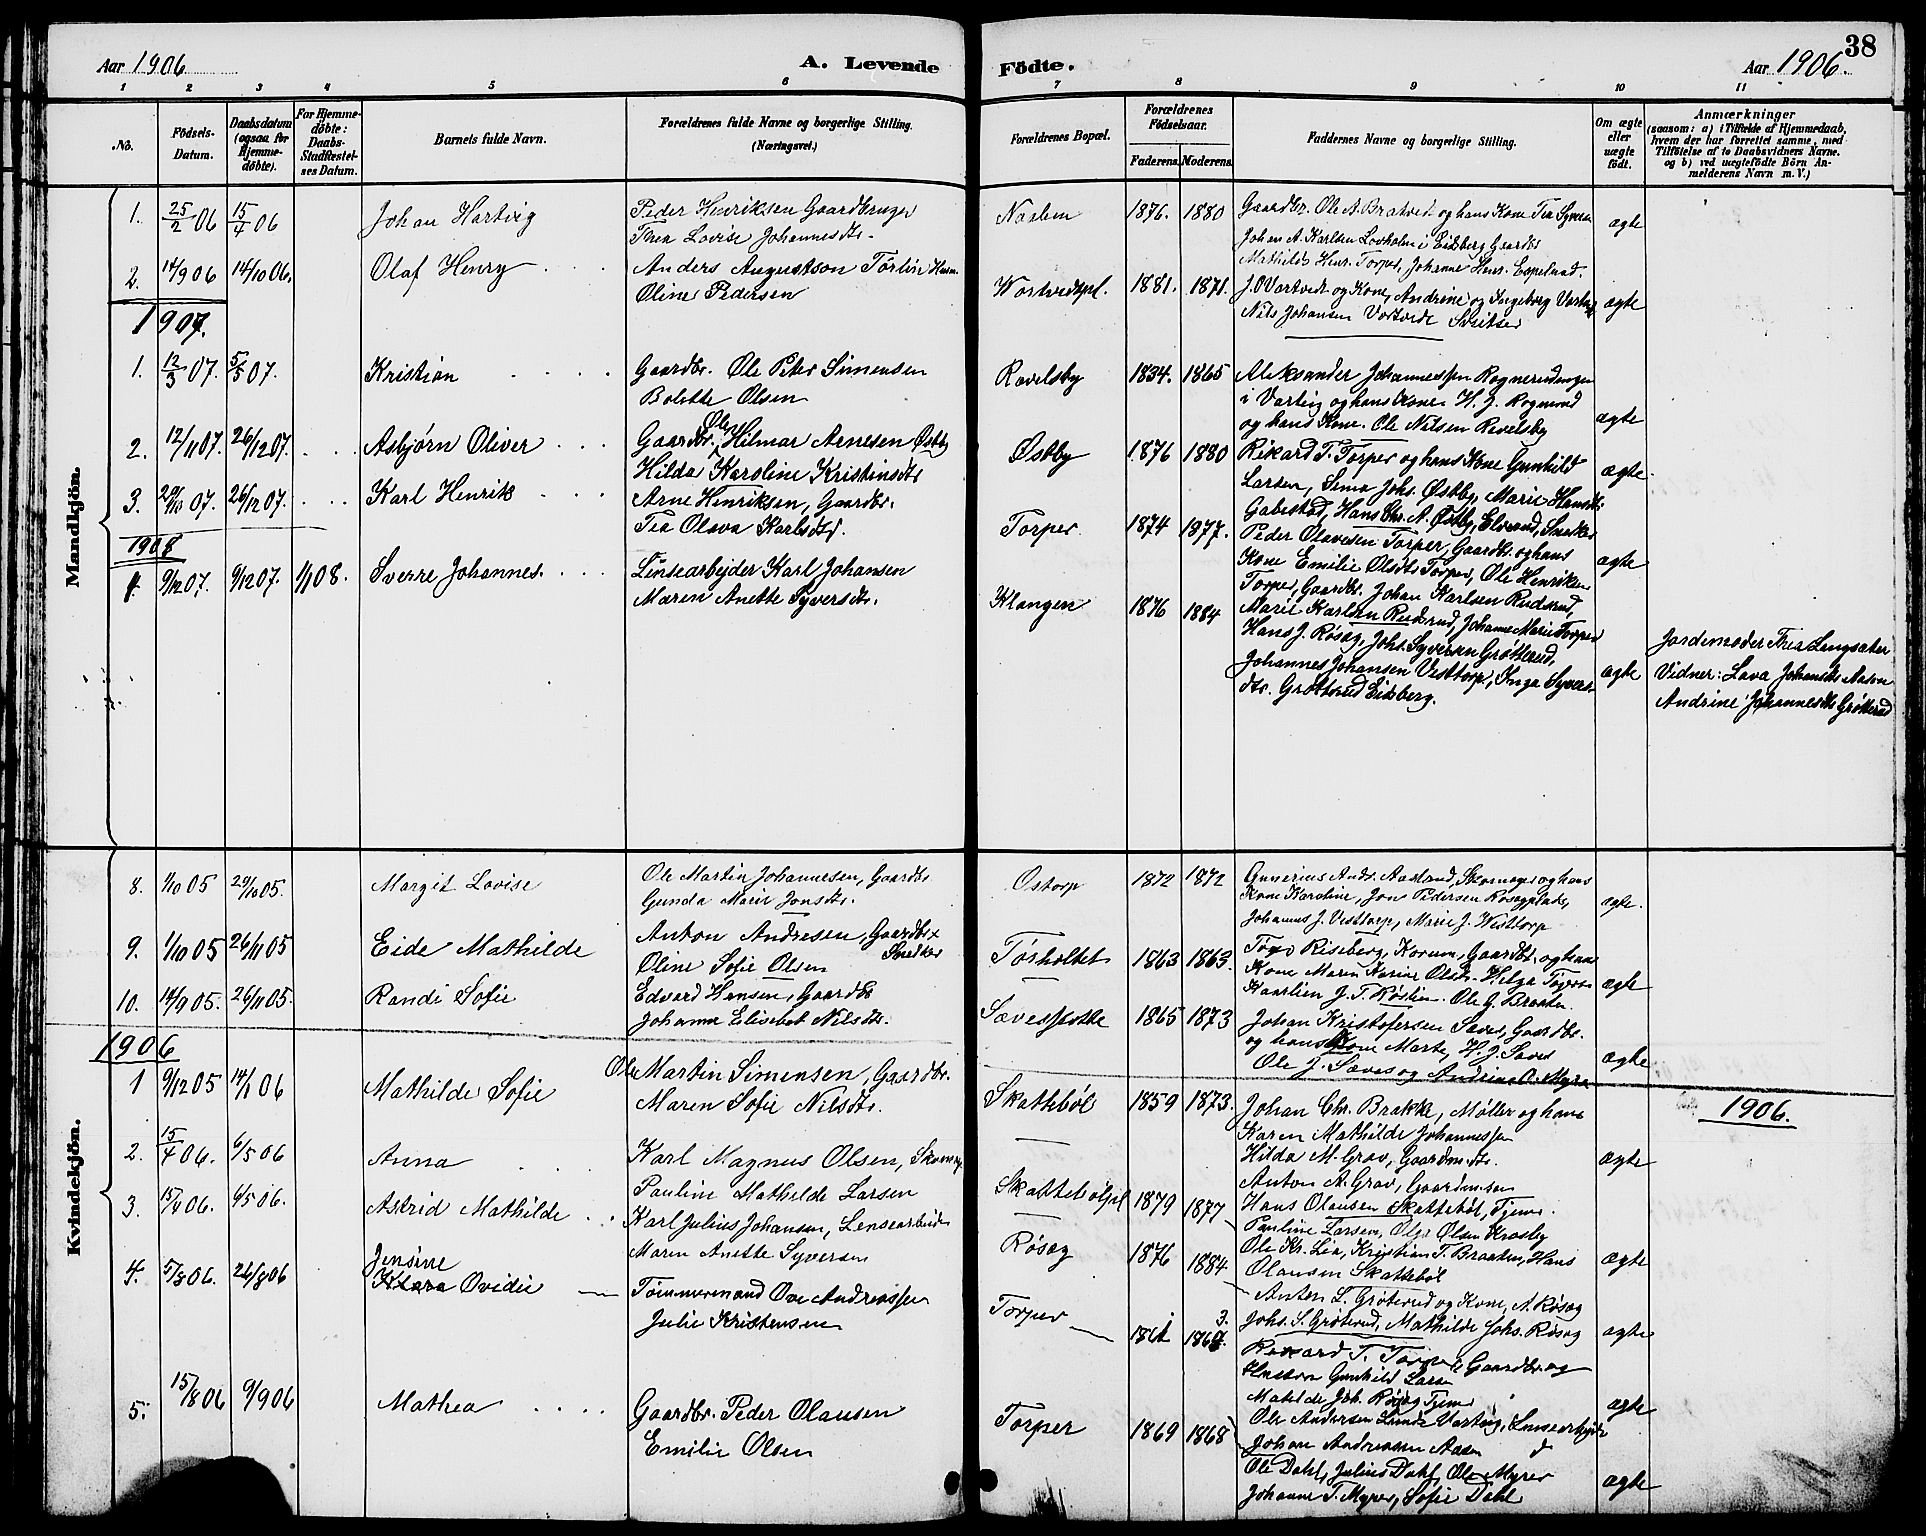 38
Aar 1906
A. Levende Födte.
Aar 1906.
1 2 3 4 5 6 7 8 9 10 11
No.
Födsels-Datum.
Daabsdatum (ogsaa for Hjemmedöbte).
For Hjemmedöbte: Daabs-Stadfæstelses Datum.
Barnets fulde Navn.
Forældrenes fulde Navne og borgerlige Stilling.
(Næringsvei.)
Forældrenes Bopæl.
Forældrenes Födselsaar.
Faderens. Moderens.
Faddernes Navne og borgerlige Stilling.
Om ægte eller uægte födt.
Anmærkninger
(saasom: a) i Tilfælde af Hjemmedaab, hvem der har forrettet samme, med Tilföielse af to Daabsvidners Navne. og b) ved uægtefödte Börn Anmelderens Navn m. V.)
Mandkjön.
1. 25/2 06 15/4 06 Johan Hartvig
Peder Henriksen Gaardbruger
Thea Lovise Johannesdtr.
1876. 1880
Gaardbr. Ole A. Bratvedt og hans Kone Tea Syvers
Johan A. Karlsen Lovholm i Eidsberg Gaardbr
Mathilde Henr. Torper, Johanne Henr. Espelund.
ægte
2. 14/9 06 14/10 06. Olaf Henry
Anders Augustson Törlin
Oline Pedersen
Vortvedtpl. 1881. 1871.
J. O Vartvedt og Kone, Andrine og Ingeborg
Nils Johansen
ægte
1907.
1. 12/3 07. 5/5 07. Kristian
Gaardbr. Ole Peter Simensen
Bolette Olsen
Ravelsby 1834. 1865
Aleksander Johannessen
og hans Kone. Ole Nilsen Revelsby
ægte
2. 12/11 07. 26/12 07. Asbjørn Oliver
Gaardbr. Ole Hilmar Arnesen Østby
Hilda Karoline Kristiansdtr
Østby 1876 1880
Rikard T. Torper og hans Kone Gunhild
Larsen, Johs. Østby, Marie Hansdtr
Gabestad, Hans Chr. A. Østby, Snedker
ægte
3. 29/10 07. 26/12 07. Karl Henrik
Arne Henriksen, Gaardbr.
Tea Olava Karlsdtr.
Torper 1874 1977.
Peder Olavesen Torper, Gaardbr. og hans
Kone Emilie Olsdtr Torper, Ole Henriksen
Torper, Gaardbr. Johan Karlsen Rudsrud,
Marie Karlsen Rudsrud, Johanne Marie Torper
ægte
1908
1. 9/12 07. 9/12 07. 1/1 08. Sverre Johannes.
Linsearbejder Karl Johansen
Maren Anette Syversdtr.
Klangen 1876 1884
Hans J. Røsæg, Johs. Syversen Grøtterud,
Johannes Johansen Vesttorp, Inga Syvers-
dtr. Grøtterud Eidsberg.
ægte
Jordemoder Thea Lengsæter
Vidner: Lava Johansdtr Aasen
Andrine Johannesdtr Grøtterud
Kvindekjön.
8. 1/10 05 29/10 05. Margit Lovise
Ole Martin Johannesen, Gaardbr
Gunda Marie Jonsdtr.
Ostorp 1872 1872
Gunerius Andr. Aaserud, Skomager og hans
Kone Karoline, Jon Pedersen Røsægplads,
Johannes J. Vesttorp, Marie J. Westtorp
ægte.
9. 1/10 05 26/11 05 Eide Mathilde
Anton Andresen, Gaardbr
Snedker
Oline Sofie Olsen
Tosholtet 1863 1863.
Riseberg, Korum, Gaardbr. og hans
Kone Maren Karine Olsdtr. Helga
Kaarlien J. T. Røslien. Ole G. Braaten
ægte
10. 14/9 05. 26/11 05. Randi Sofie
Edvard Hansen, Gaardbr
Johanne Elisebet Nilsdtr.
Sævesslotte 1865 1873
Johan Kristofersen Sæves, Gaardbr.
og hans Kone Marte, H. J. Sæves
Ole J. Sæves og Andrine A. Myra
ægte
1906
1906.
1 9/12 05 14/1 06 Mathilde Sofie
Ole Martin Simensen, Gaardbr.
Maren Sofie Nilsdtr.
Skattebøl 1859 1873.
Johan Chr. Brakke, Møller og hans
Karen Mathilde Johannessen
Hilda M. Grav, Gaardm.dtr.
Anton A. Grav, Gaardm.søn
ægte
2. 15/4 06. 6/5 06 Anna
Karl Magnus Olsen, Skomag
Pauline Mathilde Larsen
Skattebølpl 1879 1877
Hans Olausen Skattebøl, Tjener.
Pauline Larsen, Olga Olsen Krosby
Ole Kr. Lia, Kristian T. Braaten, Hans
Olausen Skattebøl
ægte
3. 15/4 06. 6/5 06. Astrid Mathilde
Karl Julius Johansen, Lensearbeider
Maren Anette Syversen
Røsæg 1876 1884
Anton L. Grøterud og Kone, A. Røsæg
Johs. S. Grøterud, Mathilde Johs. Røsæg
ægte
4. 5/8 06. 26/8 06 Jensine
Klara Ovidie
Tømmermand Ove Andreassen
Julie Kristensen
Torper 1861 186
Rikard T. Torper Gaardbr og
Hustru Gunhild Larsen
Matilde Joh. Røsæg Tjener
ægte
5. 15/8 06 9/9 06 Mathea
Gaardbr. Peder Olausen
Emilie Olsen
Torper 1869 1868
Ole Andersen Lunde Varteig, Lensearbeider
Johan Andreassen Aasen
Ole Dahl, Julius Dahl, Ole Myrer
Johanne T. Myrer, Sofie Dahl
ægte